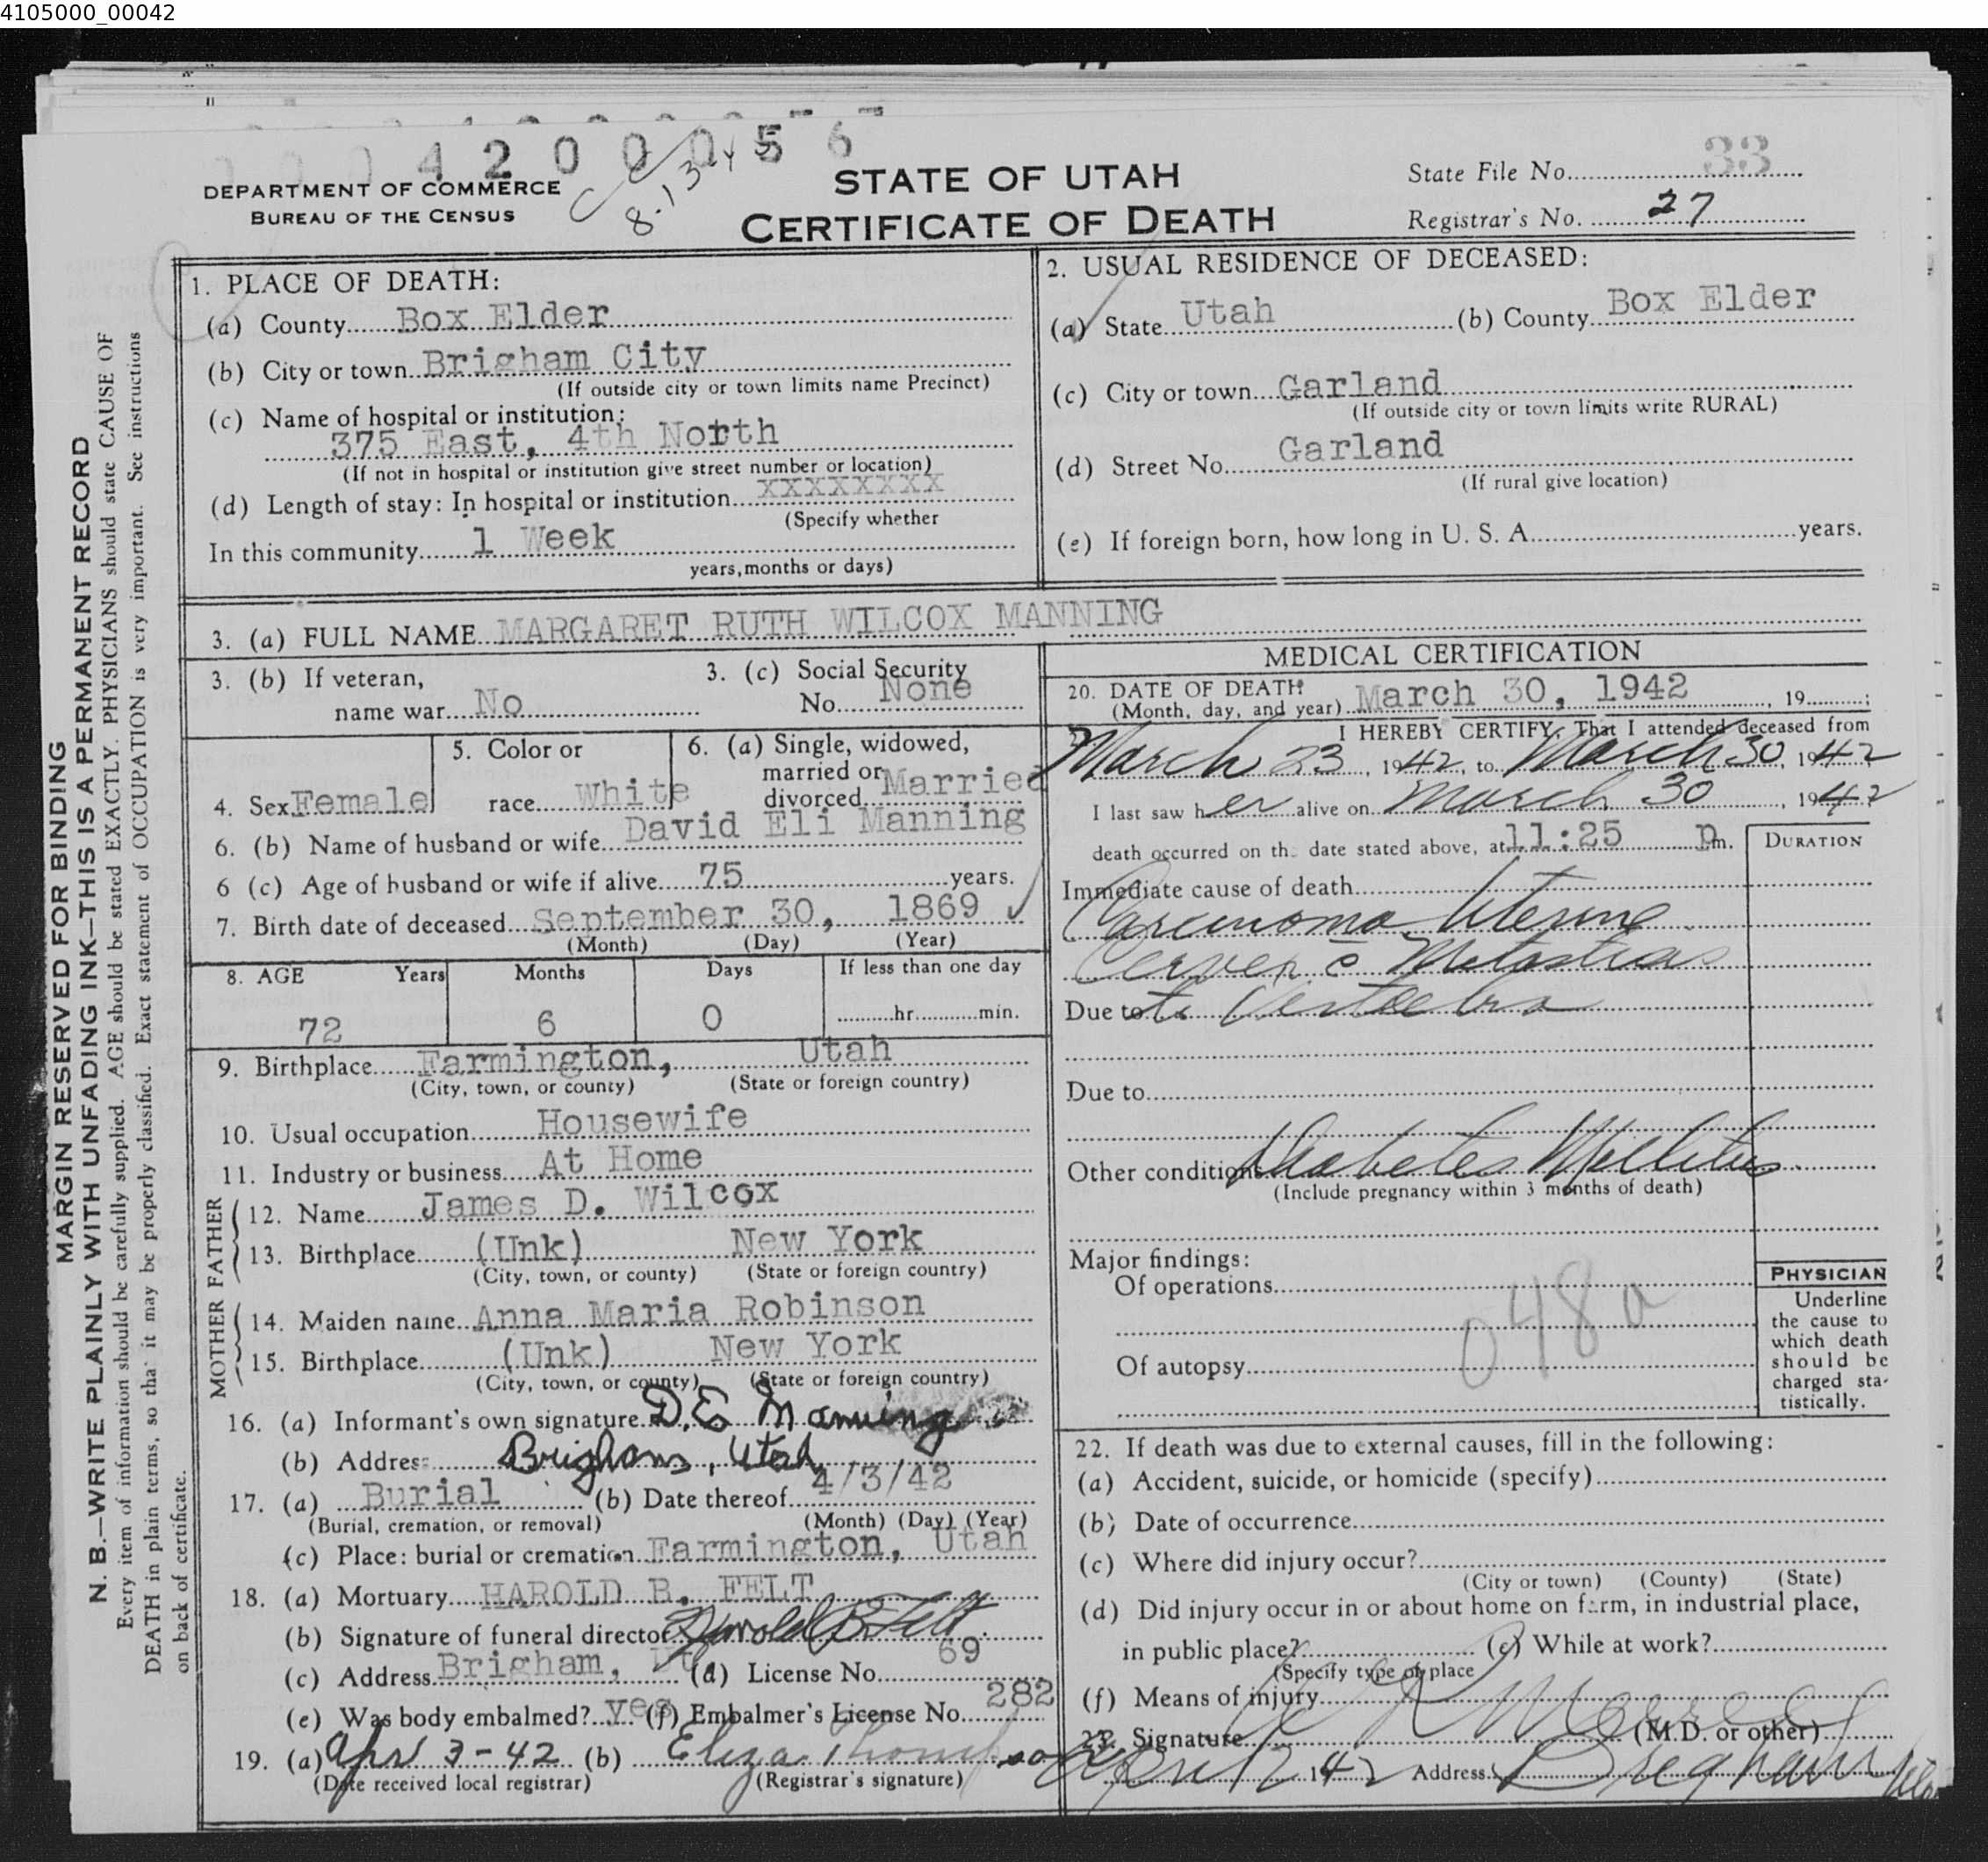 4105000_00042
4 2 0 0 0 5 6
8-13-45
DEPARTMENT OF COMMERCE
BUREAU OF THE CENSUS
STATE OF UTAH
CERTIFICATE OF DEATH
State File No. 33
Registrar's No. 27
MARGIN RESERVED FOR BINDING
N. B.—WRITE PLAINLY WITH UNFADING INK—THIS IS A PERMANENT RECORD
Every item of information should be carefully supplied. AGE should be stated EXACTLY. PHYSICIANS should state CAUSE OF
DEATH in plain terms, so that it may be properly classified. Exact statement of OCCUPATION is very important. See instructions
on back of certificate.
1. PLACE OF DEATH:
(a) County Box Elder
(b) City or town Brigham City
(If outside city or town limits name Precinct)
(c) Name of hospital or institution:
375 East, 4th North
(If not in hospital or institution give street number or location)
(d) Length of stay: In hospital or institution XXXXXXXX
(Specify whether
In this community 1 Week
years, months or days)
2. USUAL RESIDENCE OF DECEASED:
(a) State Utah (b) County Box Elder
(c) City or town Garland
(If outside city or town limits write RURAL)
(d) Street No. Garland
(If rural give location)
(e) If foreign born, how long in U. S. A. years.
3. (a) FULL NAME MARGARET RUTH WILCOX MANNING
3. (b) If veteran,
name war No
3. (c) Social Security
No. None
4. Sex Female
5. Color or
race White
6. (a) Single, widowed,
married or
divorced Married
6. (b) Name of husband or wife David Eli Manning
6 (c) Age of husband or wife if alive 75 years.
7. Birth date of deceased September 30, 1869
(Month) (Day) (Year)
8. AGE Years Months Days If less than one day
72 6 0 hr. min.
9. Birthplace Farmington, Utah
(City, town, or county) (State or foreign country)
10. Usual occupation Housewife
11. Industry or business At Home
FATHER
12. Name James D. Wilcox
13. Birthplace (Unk) New York
(City, town, or county) (State or foreign country)
MOTHER
14. Maiden name Anna Maria Robinson
15. Birthplace (Unk) New York
(City, town, or county) (State or foreign country)
16. (a) Informant's own signature D. E Manning
(b) Address Brigham, Utah
17. (a) Burial (b) Date thereof 4/3/42
(Burial, cremation, or removal) (Month) (Day) (Year)
(c) Place: burial or cremation Farmington, Utah
18. (a) Mortuary HAROLD B. FELT
(b) Signature of funeral director Harold B. Felt
(c) Address Brigham, Ut. (d) License No. 69
(e) Was body embalmed? yes (f) Embalmer's License No. 282
19. (a) Apr 3-42 (b) Eliza Thompson
(Date received local registrar) (Registrar's signature)
MEDICAL CERTIFICATION
20. DATE OF DEATH
(Month, day, and year) March 30, 1942, 19
I HEREBY CERTIFY, That I attended deceased from
March 23, 1942, to March 30, 1942
I last saw her alive on March 30, 1942
death occurred on the date stated above, at 11:25 p.m.
DURATION
Immediate cause of death
Carcinoma Uterine
Cervex c Metastias
Due to to Vertebra
Due to
Other conditions Diabetes Mellitus
(Include pregnancy within 3 months of death)
Major findings:
Of operations
048a
Of autopsy
PHYSICIAN
Underline
the cause to
which death
should be
charged sta-
tistically.
22. If death was due to external causes, fill in the following:
(a) Accident, suicide, or homicide (specify)
(b) Date of occurrence
(c) Where did injury occur?
(City or town) (County) (State)
(d) Did injury occur in or about home on farm, in industrial place,
in public place? (e) While at work?
(Specify type of place
(f) Means of injury
23. Signature (M.D. or other)
April 2 1942 Address Brigham Utah